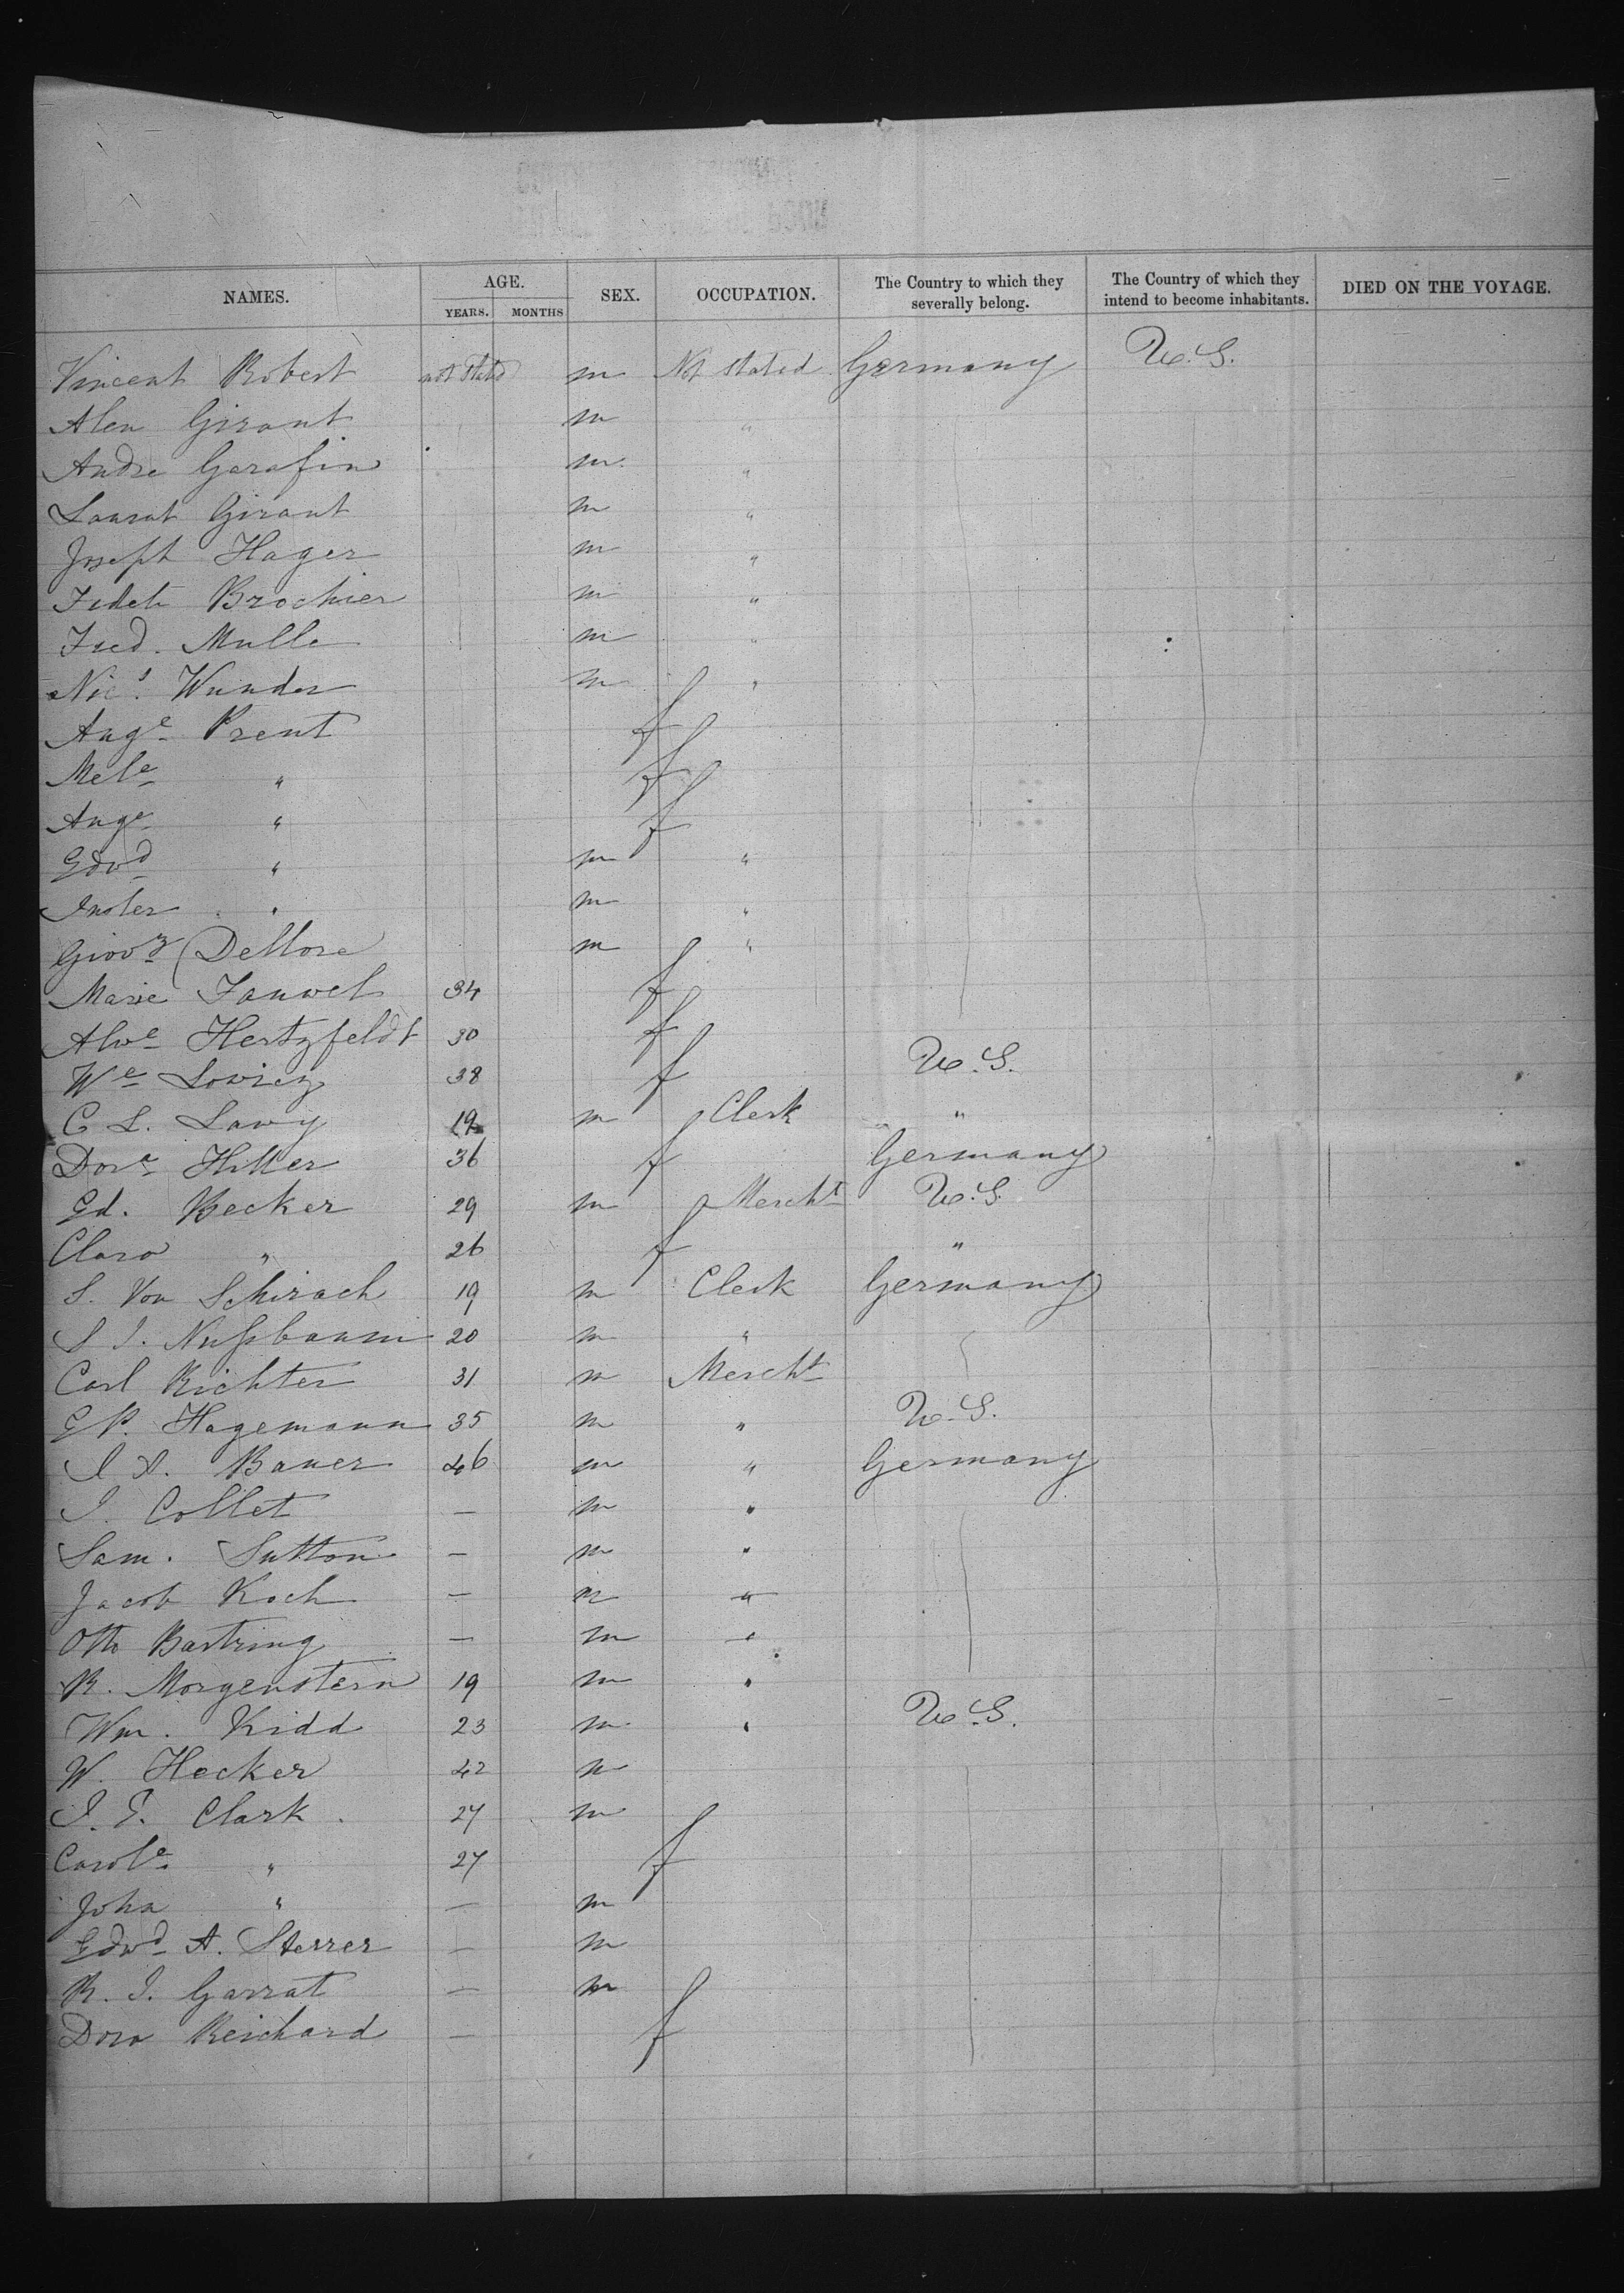 NAMES. AGE. SEX. OCCUPATION. The Country to which they severally belong. The Country of which they intend to become inhabitants. DIED ON THE VOYAGE.
YEARS. MONTHS
Vincent Robert not stated m Not stated Germany U.S.
Alen Girant m "
Andre Garafin m "
Laurat Girant m "
Joseph Hager m "
Brochier m "
Fred. Mulle m "
Nics. Wunder m "
Auge Prent f
Mele " f
Auge " f
Edwd " m "
" m "
Giov Dellore m "
Marie Fauwel 34 f
Alwe Hertzfeldt 30 f
We Lowiez 38 f U.S.
C L. Lawy 19 m Clerk "
Dore Hiller 36 f Germany
Ed. Becker 29 m Mercht U.S.
Clara " 26 f "
S. Von Schirach 19 m Clerk Germany
S I. Nußbaum 20 m "
Carl Richter 31 m Mercht
E P. Hagemann 35 m " U.S.
I A. Bauer 46 m " Germany
I. Collet — m "
Sam. Sutton — m "
Jacob Koch — m "
Otto Bartring — m "
R. Morgenstern 19 m "
Wm. Kidd 23 m " U.S.
W. Hecker 42 m
I. E. Clark. 27 m
Carole " 27 f
John " — m
Edwd A. Sterrer — m
R. I. Garrat — m
Dora Reichard — f